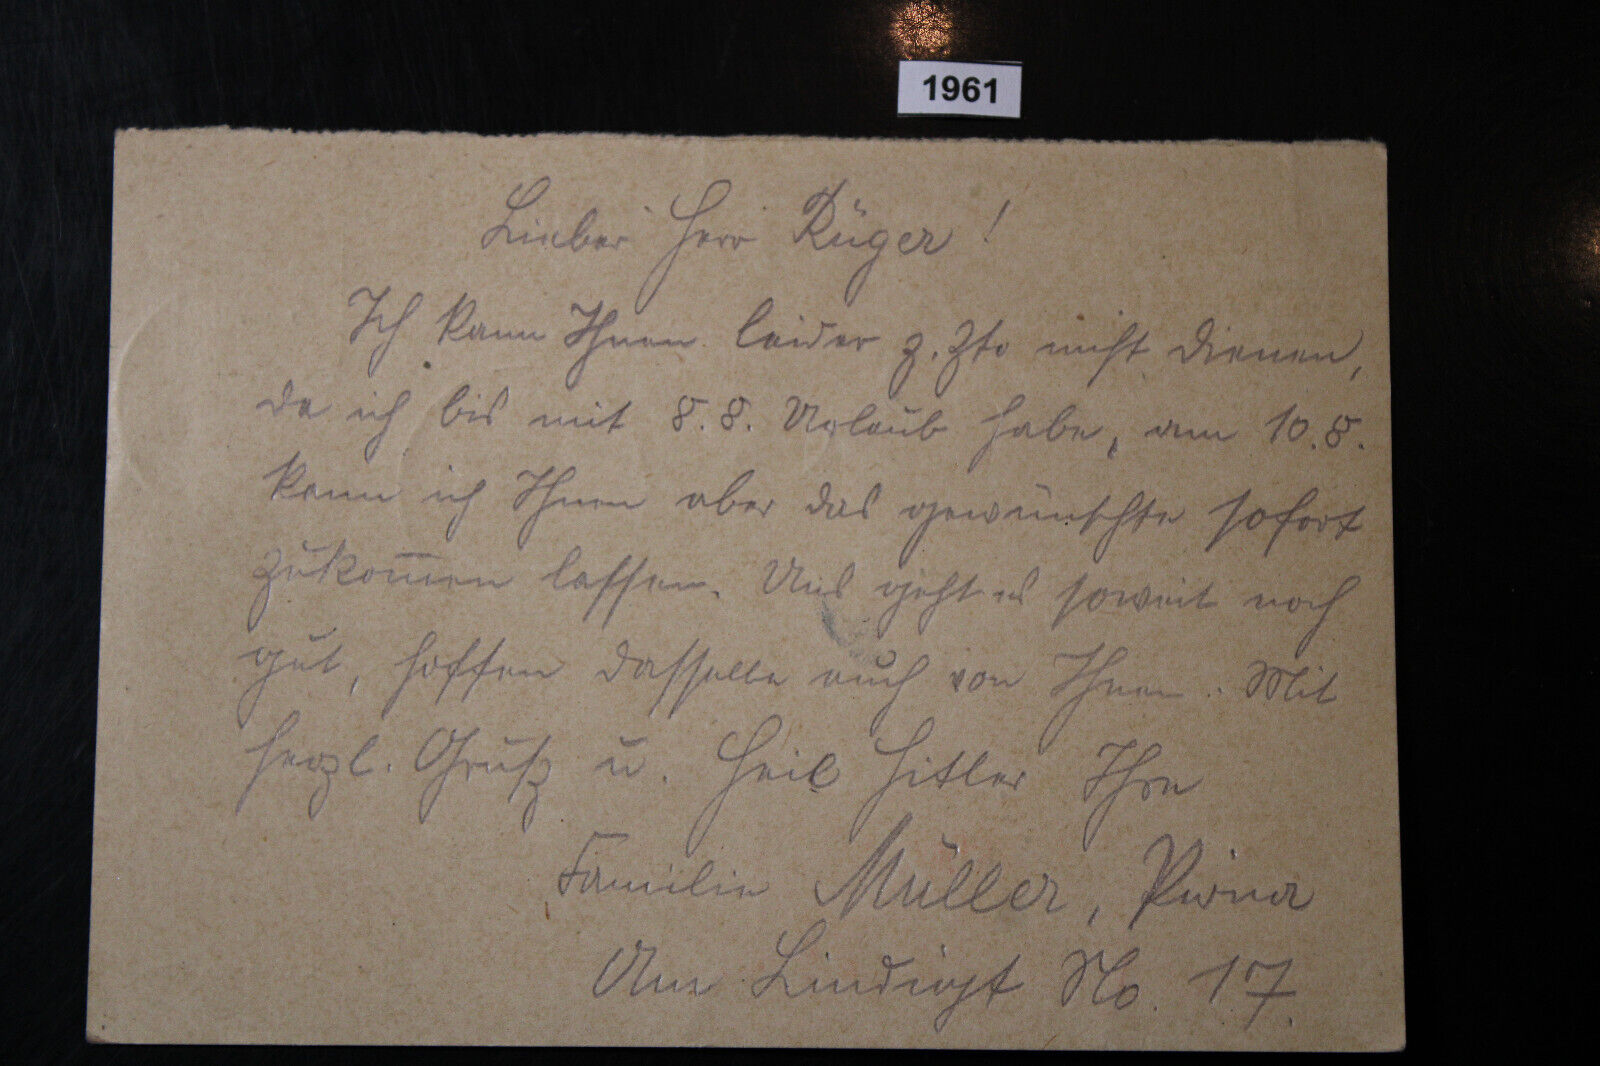 1961
Lieber Herr Rüger!
Ich kann Ihnen leider z. Zt. nicht dienen,
da ich bis mit 8.8. Urlaub habe, am 10.8.
kann ich Ihnen aber das gewünschte sofort
zukommen lassen. Uns geht es soweit noch
gut, hoffen dasselbe auch von Ihnen. Mit
herzl. Gruß u. Heil Hitler Ihre
Familie Müller, Pirna
Am Lindigt No. 17.